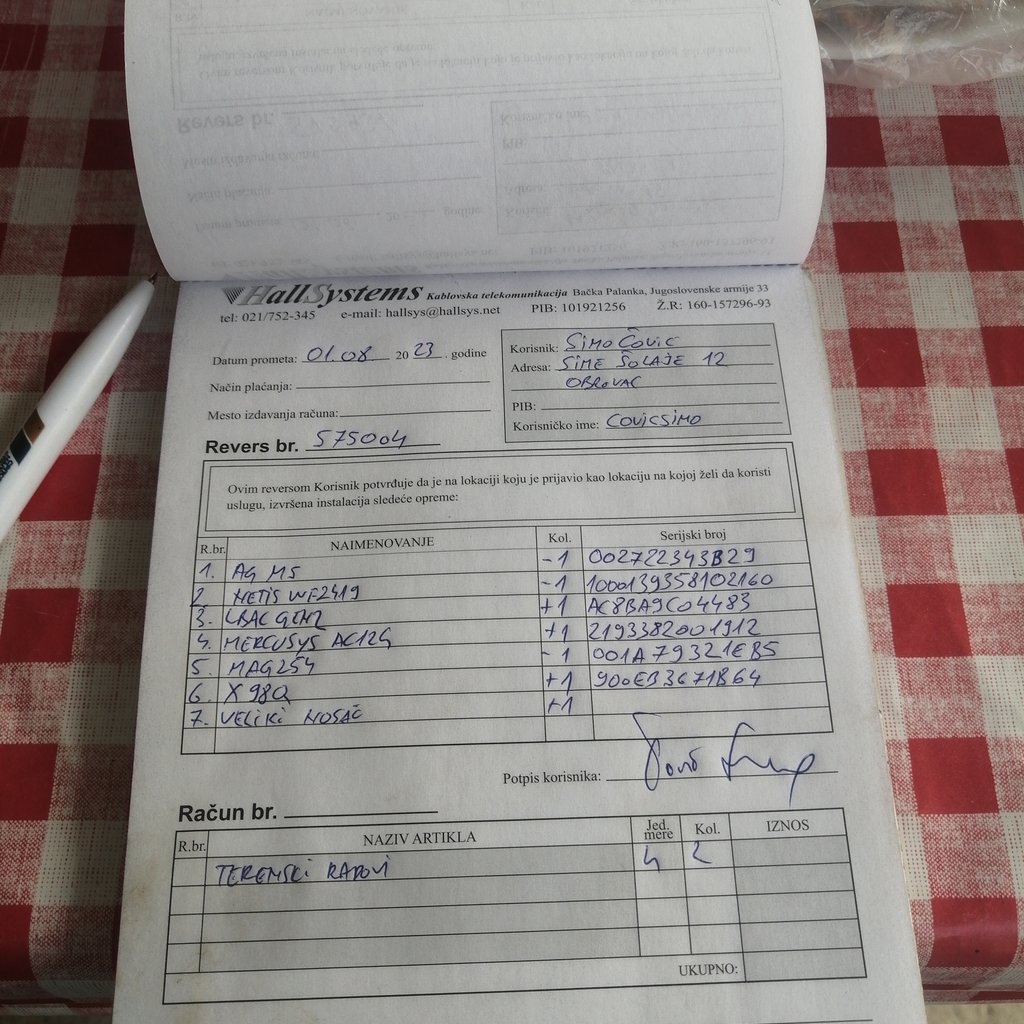 HallSystems Kablovska telekomunikacija Bačka Palanka, Jugoslovenske armije 33
tel: 021/752-345 e-mail: hallsys@hallsys.net PIB: 101921256 Ž.R: 160-157296-93
Datum prometa: 01.08 2023. godine
Način plaćanja:
Mesto izdavanja računa:
Revers br. 575004
Korisnik: SIMO ČOVIC
Adresa: SIME ŠOLAJE 12
OBROVAC
PIB:
Korisničko ime: COVICSIMO
Ovim reversom Korisnik potvrđuje da je na lokaciji koju je prijavio kao lokaciju na kojoj želi da koristi
uslugu, izvršena instalacija sledeće opreme:
R.br. NAIMENOVANJE Kol. Serijski broj
1. AG M5 -1 002722343B29
2. NETIS WF2419 -1 1000139358102160
3. +1 AC8BA9C04483
4. MERCUSYS AC12G +1 2193382001912
5. MAG254 -1 001A79321E85
6. X98Q +1 900EB3671B64
7. VELIKI NOSAČ +1
Potpis korisnika:
Račun br.
R.br. NAZIV ARTIKLA Jed. mere Kol. IZNOS
TERENSKI RADOVI h 2
UKUPNO: